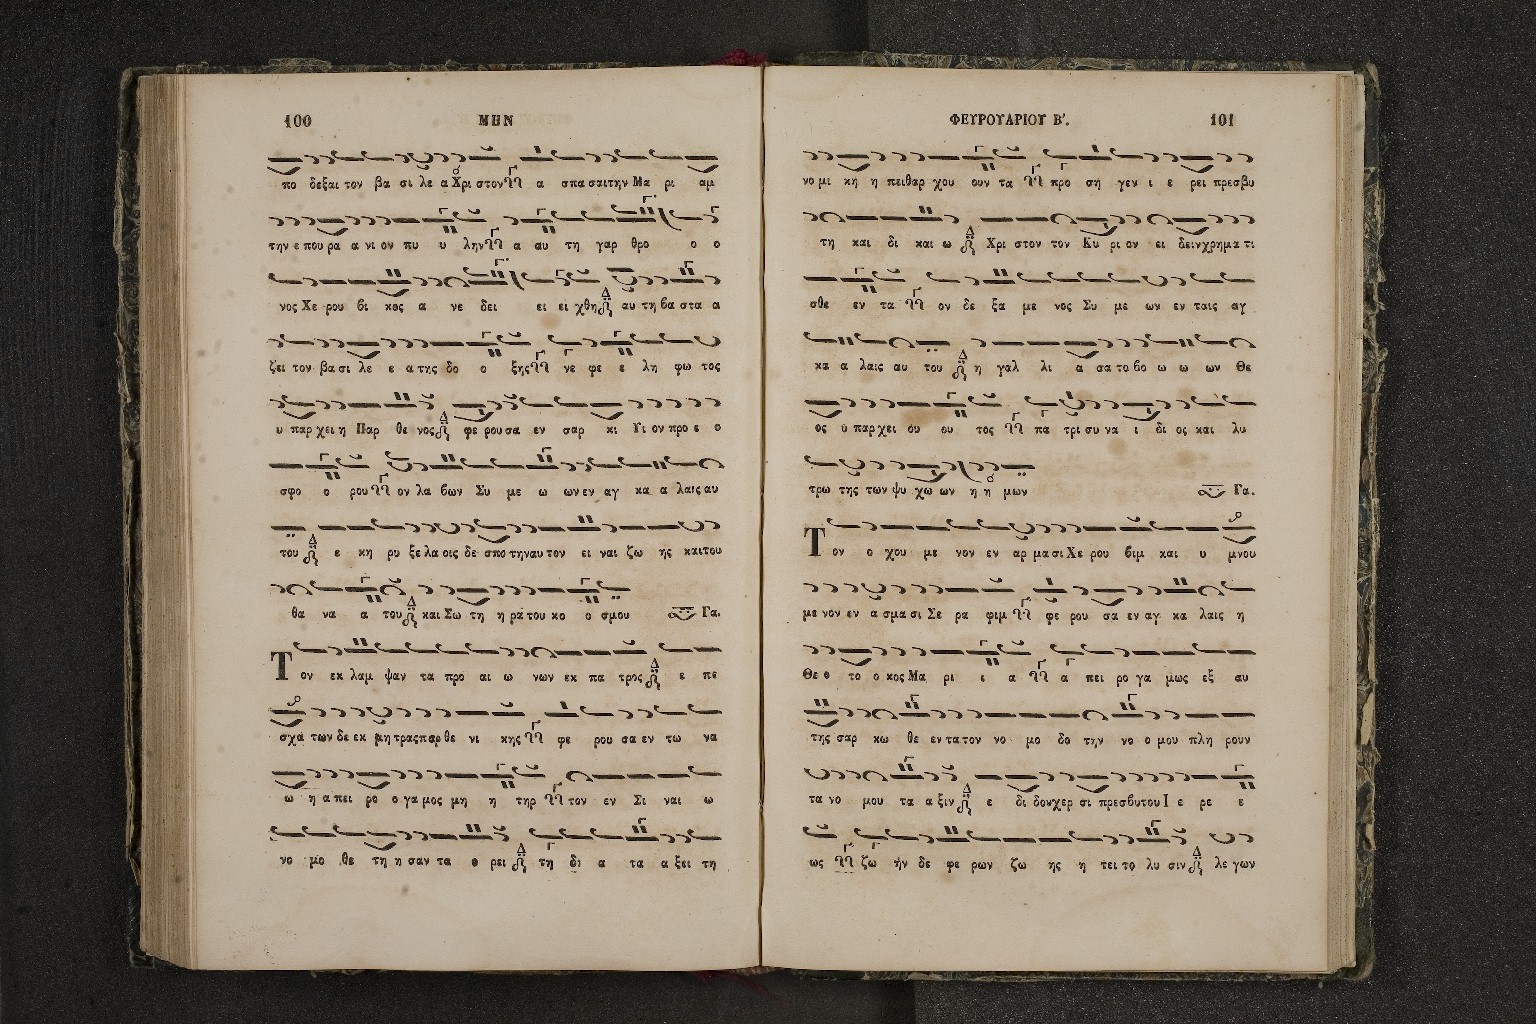 100 ΜΗΝ
πο δεξαι τον βα σι λε α Χρι στον α σπα σαι την Μα ρι αμ
την ε που ρα α νι ον πυ υ λην α αυ τη γαρ θρο ο ο
νος Χε ρου βι κος α νε δει ει ει χθη αυ τη βα στα α
ζει τον βα σι λε ε α της δο ο ξης νε φε ε λη φω τος
υ παρ χει η Παρ θε νος φε ρου σα εν σαρ κι Υι ον προ ε ο
σφο ο ρου ον λα βων Συ με ω ων εν αγ κα α λαις αυ
του ε κη ρυ ξε λα οις δε σπο την αυ τον ει ναι ζω ης και του
θα να α του και Σω τη η ρα του κο ο σμου Γα.
Τον εκ λαμ ψαν τα προ αι ω νων εκ πα τρος ε πε
σχα των δε εκ μη τρας παρ θε νι κης φε ρου σα εν τω να
ω η α πει ρο ο γα μος μη η τηρ τον εν Σι ναι ω
νο μο θε τη η σαν τα ο ρει τη δι α τα α ξει τη
ΦΕΥΡΟΥΑΡΙΟΥ Β΄. 101
νο μι κη η πει θαρ χου ουν τα προ ση γεν ι ε ρει πρεσβυ
τη και δι και ω Χρι στον τον Κυ ρι ον ει δειν χρημα τι
σθε εν τα ον δε ξα με νος Συ με ων εν ταις αγ
κα α λαις αυ του η γαλ λι α σα το βο ω ω ων Θε
ος υ παρ χει ου ου τος πα τρι συ να ι δι ος και λυ
τρω της των ψυ χω ων η η μων Γα.
Τον ο χου με νον εν αρ μα σι Χε ρου βιμ και υ μνου
με νον εν α σμα σι Σε ρα φιμ φε ρου σα εν αγ κα λαις η
Θε ο το ο κος Μα ρι ι α α πει ρο γα μως εξ αυ
της σαρ κω θε εν τα τον νο μο δο την νο ο μου πλη ρουν
τα νο μου τα α ξιν ε δι δου χερ σι πρεσβυτου Ι ε ρε ε
ως ζω ην δε φε ρων ζω ης η τει το λυ σιν λε γων